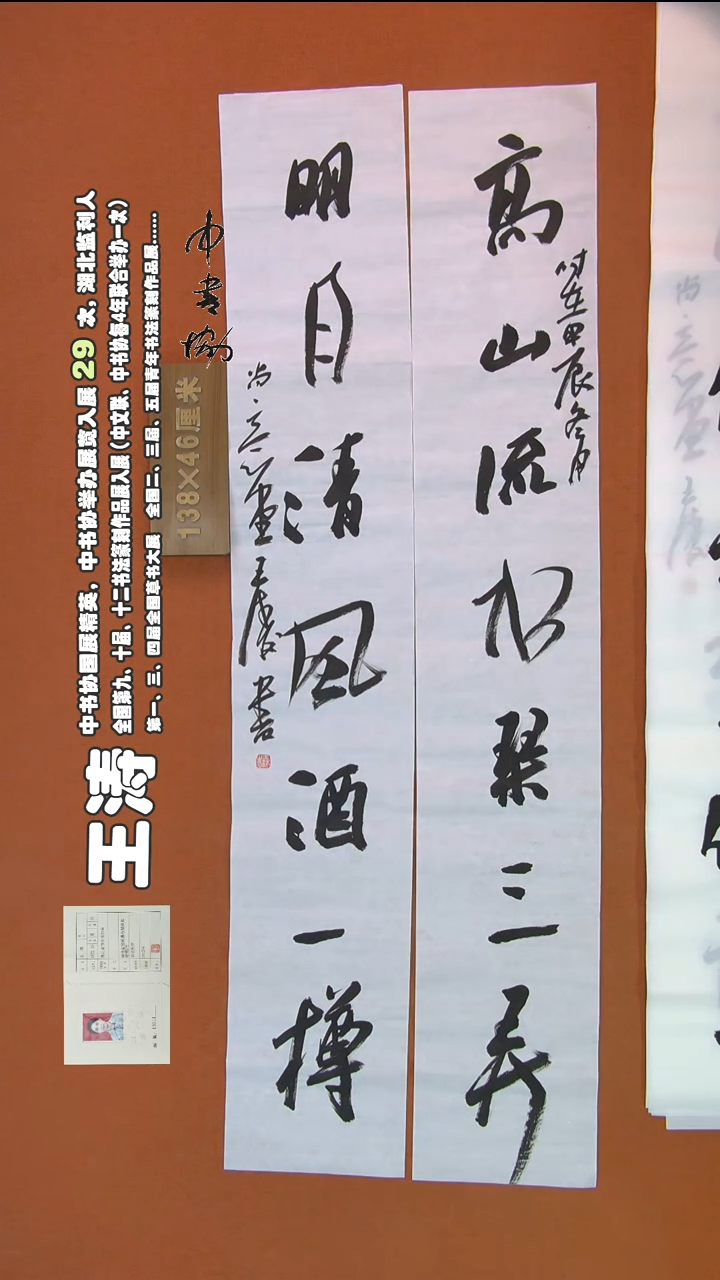 高山流水琴三弄
时在甲辰冬月
明月清风酒一樽
尚意心画王涛书
中书协
138×46厘米
王涛
中书协国展精英,中书协举办展览入展 29 次,湖北监利人
全国第九、十届、十二书法篆刻作品展入展(中文联、中书协每4年联合举办一次)
第一、三、四届全国草书大展 全国二、三届、五届青年书法篆刻作品展......